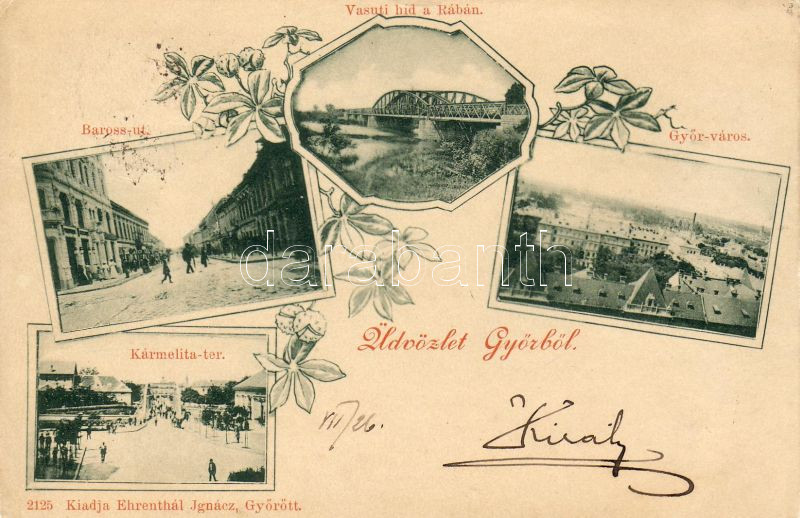 Vasuti hid a Rábán.
Baross-ut.
Győr-város.
darabanth
Üdvözlet Győrből.
Kármelita-ter.
VII/26.
Király
2125 Kiadja Ehrenthál Jgnácz, Győrött.